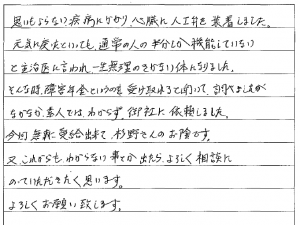 思いもよらない疾病にかかり心臓に人工弁を装着しました。
元気に戻ったといっても、通常の人の半分しか機能していない
と主治医に言われ一生無理のきかない体になりました。
そんな時、障害年金というのを受け取れると聞いて、調べましたが
なかなか素人では、わからず、御社に依頼しました。
今回無事に受給出来て杉野さんのお陰です。
又これからも、わからない事が出たら、よろしく相談に
のっていただきたく思います。
よろしくお願い致します。